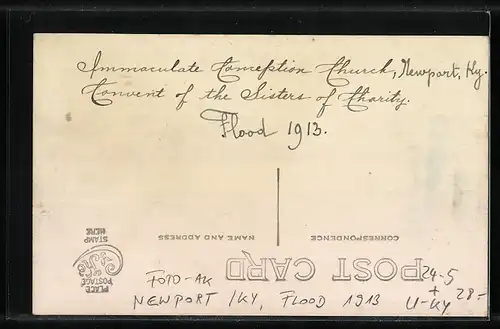 Immaculate Conception Church, Newport, Ky.
Convent of the Sisters of Charity.
Flood 1913.
CORRESPONDENCE
NAME AND ADDRESS
POST CARD
PLACE
POSTAGE
STAMP
HERE
FOTO-AK
NEWPORT /KY, FLOOD 1913
24-5
+
U-KY
28-